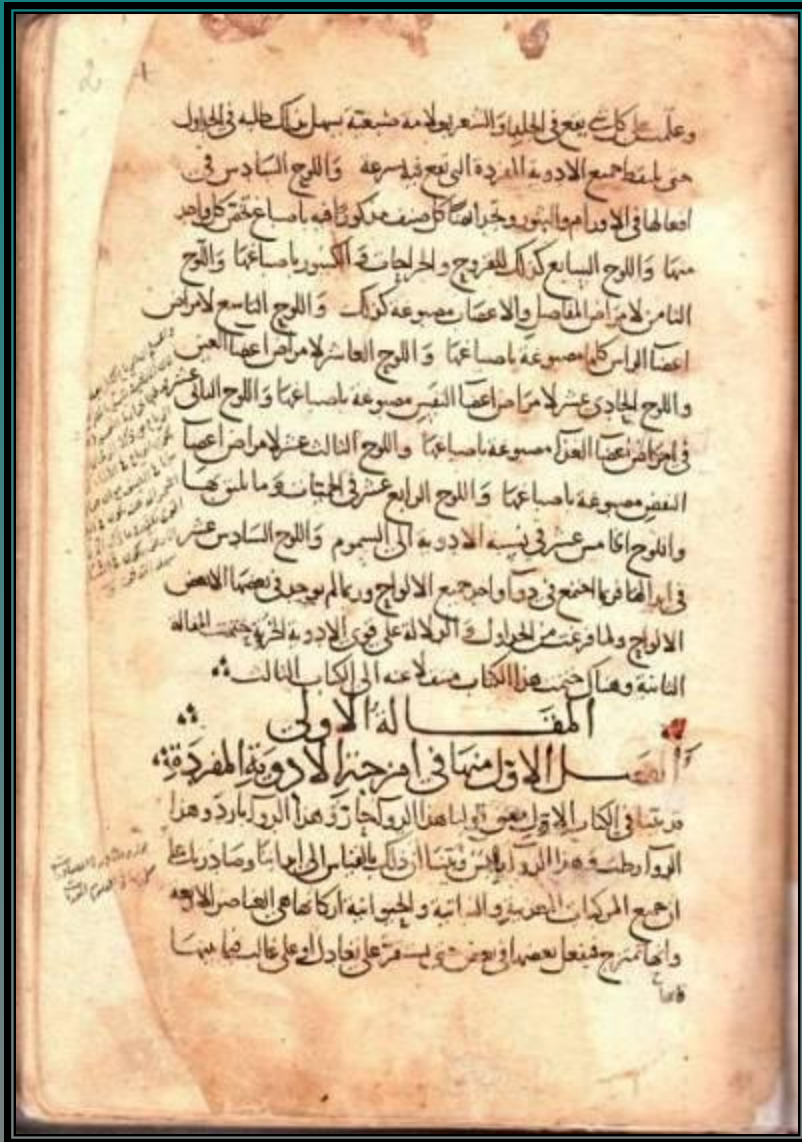 وعلمت على كل شي يقع في الحلية والشعر بعلامة صبغية يسهل بذلك طلبه في الجداول
حتى يلتقط جميع الادوية المفردة التي تقع فيه بسرعة واللوح السادس في
افعالها في الاورام والبثور وتجد ايضا كل صنف مذكورا فيه باصباغ تخص كل واحد
منها واللوح السابع كذلك للقروح والجراحات والكسور باصباغها واللوح
الثامن لامراض المفاصل والاعصاب مصبوغة كذلك واللوح التاسع لامراض
اعضا الراس كلها مصبوغة باصباغها واللوح العاشر لامراض اعضا العين
واللوح الحادي عشر لامراض اعضا النفس مصبوغة باصباغها واللوح الثاني عشر
في امراض اعضا الغذا مصبوغة باصباغها واللوح الثالث عشر لامراض اعضا
النفض مصبوغة باصباغها واللوح الرابع عشر في الحميات وما يليق بها
واللوح الخامس عشر في نسبه الادوية الى السموم واللوح السادس عشر
في ابدالها فربما اجتمع في دوآ واحد جميع الالواح وربما لم يوجد في بعضها الا بعض
الالواح ولما فرغت من الجداول والدلالة على قوى الادوية الجزئية ختمت المقالة
الثانية وهناك ختمت هذا الكتاب منتقلا عنه الى الكتاب الثالث
المقالة الاولى
الفصل الاول منها في امزجة الادوية المفردة
قد بينا في الكتاب الاول معنى قولنا هذا الدوآ حار وهذا الدوآ بارد وهذا
الدوآ رطب وهذا الدوآ يابس وبينا ان ذلك بالقياس الى ابداننا وصادرنا على
ان جميع المركبات المعدنية والنباتية والحيوانية اركانها هي العناصر الاربعه
وانها تمتزج فيفعل بعضها في بعض حتى يستقر على تعادل او على غالب فيما بينها